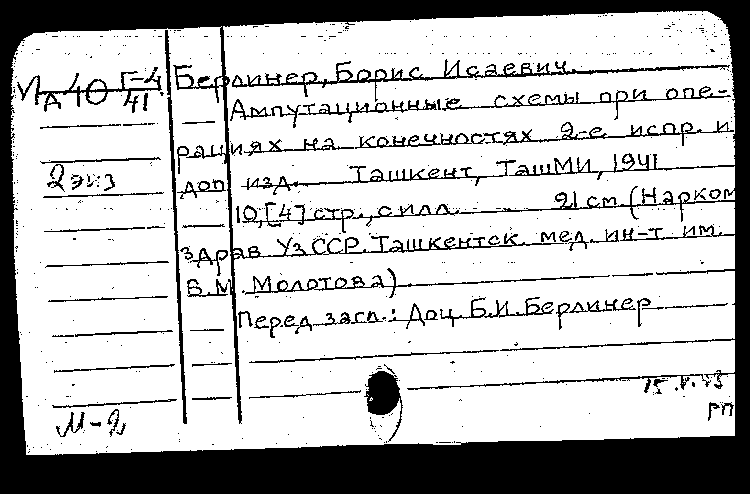 Ил 40 Г-4
А 41
Берлинер, Борис Исаевич.
Ампутационные схемы при опе-
рациях на конечностях 2-е испр. и
2 экз
доп изд. Ташкент, ТашМИ, 1941
10,[4] стр., с илл. 21 см (Нарком
здрав УзССР. Ташкентск. мед. ин-т им.
В.М. Молотова)
Перед загл.: Доц. Б.И. Берлинер
15.V.43
РП
М-2